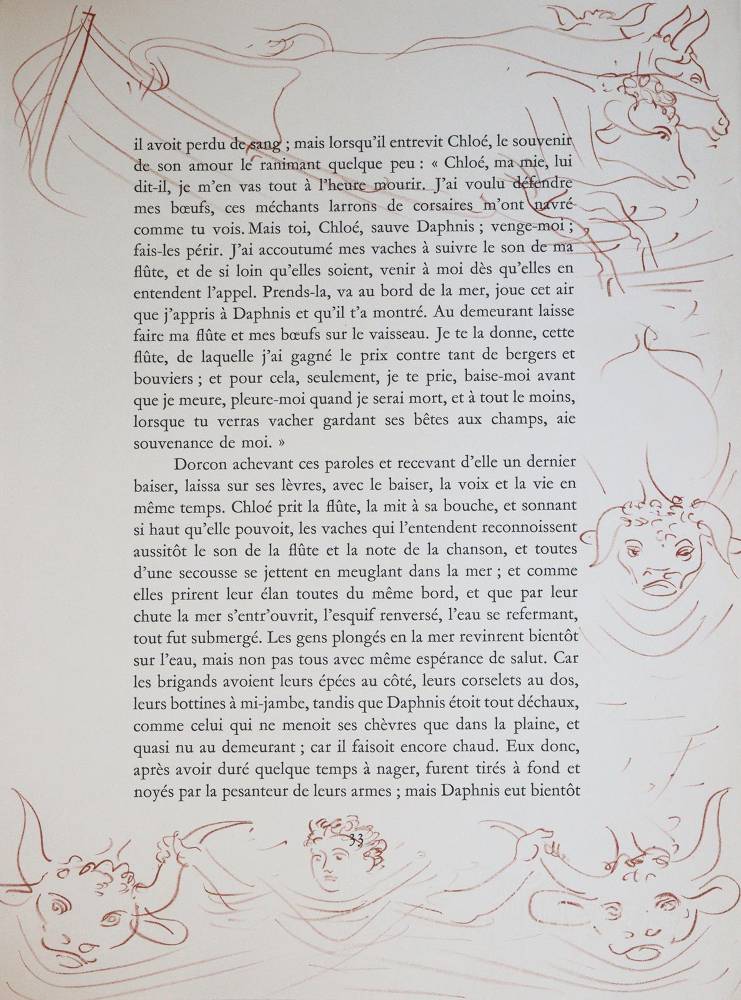 il avoit perdu de sang ; mais lorsqu'il entrevit Chloé, le souvenir
de son amour le ranimant quelque peu : « Chloé, ma mie, lui
dit-il, je m'en vas tout à l'heure mourir. J'ai voulu défendre
mes bœufs, ces méchants larrons de corsaires m'ont navré
comme tu vois. Mais toi, Chloé, sauve Daphnis ; venge-moi ;
fais-les périr. J'ai accoutumé mes vaches à suivre le son de ma
flûte, et de si loin qu'elles soient, venir à moi dès qu'elles en
entendent l'appel. Prends-la, va au bord de la mer, joue cet air
que j'appris à Daphnis et qu'il t'a montré. Au demeurant laisse
faire ma flûte et mes bœufs sur le vaisseau. Je te la donne, cette
flûte, de laquelle j'ai gagné le prix contre tant de bergers et
bouviers ; et pour cela, seulement, je te prie, baise-moi avant
que je meure, pleure-moi quand je serai mort, et à tout le moins,
lorsque tu verras vacher gardant ses bêtes aux champs, aie
souvenance de moi. »
Dorcon achevant ces paroles et recevant d'elle un dernier
baiser, laissa sur ses lèvres, avec le baiser, la voix et la vie en
même temps. Chloé prit la flûte, la mit à sa bouche, et sonnant
si haut qu'elle pouvoit, les vaches qui l'entendent reconnoissent
aussitôt le son de la flûte et la note de la chanson, et toutes
d'une secousse se jettent en meuglant dans la mer ; et comme
elles prirent leur élan toutes du même bord, et que par leur
chute la mer s'entr'ouvrit, l'esquif renversé, l'eau se refermant,
tout fut submergé. Les gens plongés en la mer revinrent bientôt
sur l'eau, mais non pas tous avec même espérance de salut. Car
les brigands avoient leurs épées au côté, leurs corselets au dos,
leurs bottines à mi-jambe, tandis que Daphnis étoit tout déchaux,
comme celui qui ne menoit ses chèvres que dans la plaine, et
quasi nu au demeurant ; car il faisoit encore chaud. Eux donc,
après avoir duré quelque temps à nager, furent tirés à fond et
noyés par la pesanteur de leurs armes ; mais Daphnis eut bientôt
33